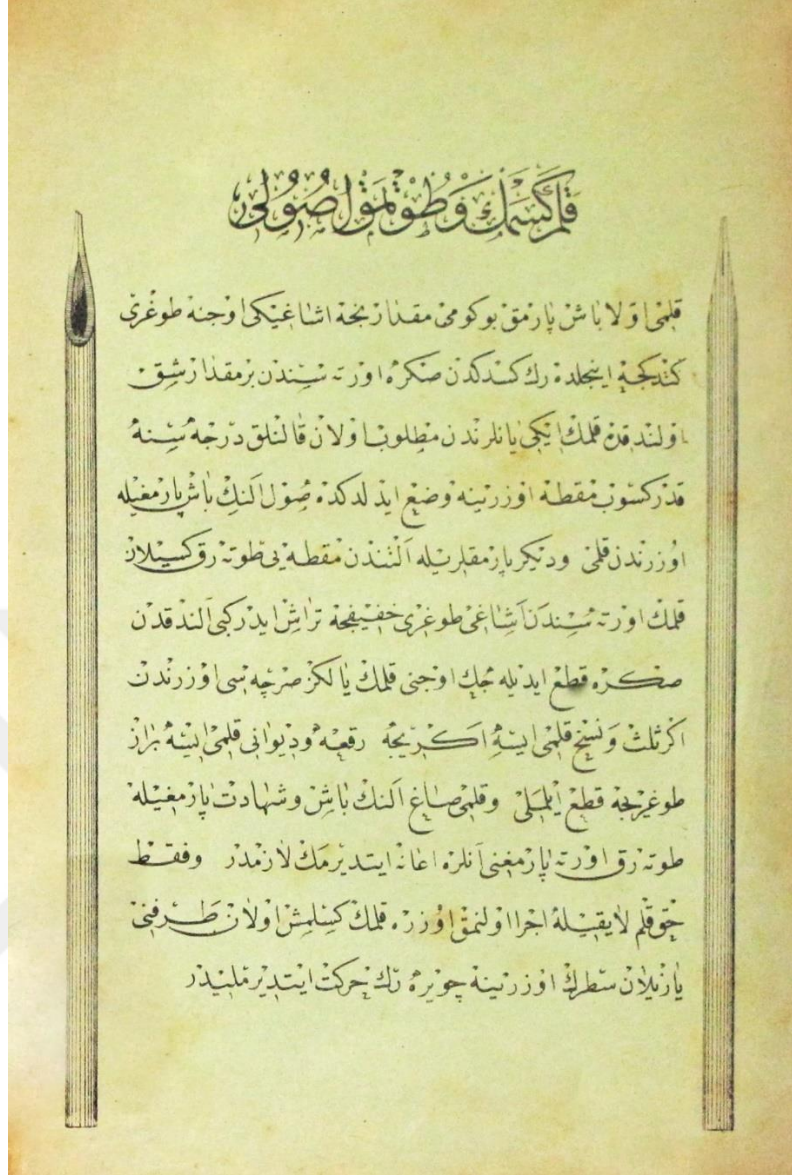 قلم كسمك و طوتمق اصولی
قلمی اولا باش پارمق بوكومی مقدارنجه اشاغیكی اوجنه طوغری
كندكجه اینجلده رك كسدكدن صكره اورته سندن بر مقدار شق
اولندقدن قلمك ایكی یانلرندن مطلوب اولان قالنلق درجه سنه
قدر كسوب مقطه اوزرینه وضع ایدلدكده صول الك باش پارمغیله
اوزرندن قلمی و دیكر پارمقلریله التندن مقطه یی طوته رق كسیلان
قلمك اورته سندن اشاغی طوغری خفیفجه تراش ایدر كبی آلندقدن
صكره قطع ایدیله جك اوجنی قلمك یالكز صرچه سی اوزرندن
اكر ثلث و نسخ قلمی ایسه اكریجه رقعه و دیوانی قلمی ایسه براز
طوغریجه قطع ایلملی و قلمی صاغ الك باش و شهادت پارمغیله
طوته رق اورته پارمغنی آنلره اعانه ایتدیرمك لازمدر و فقط
حق قلم لایقیله اجرا اولنمق اوزره قلمك كسلمش اولان طرفنی
یازیلان سطرك اوزرینه چویره رك حركت ایتدیرملیدر